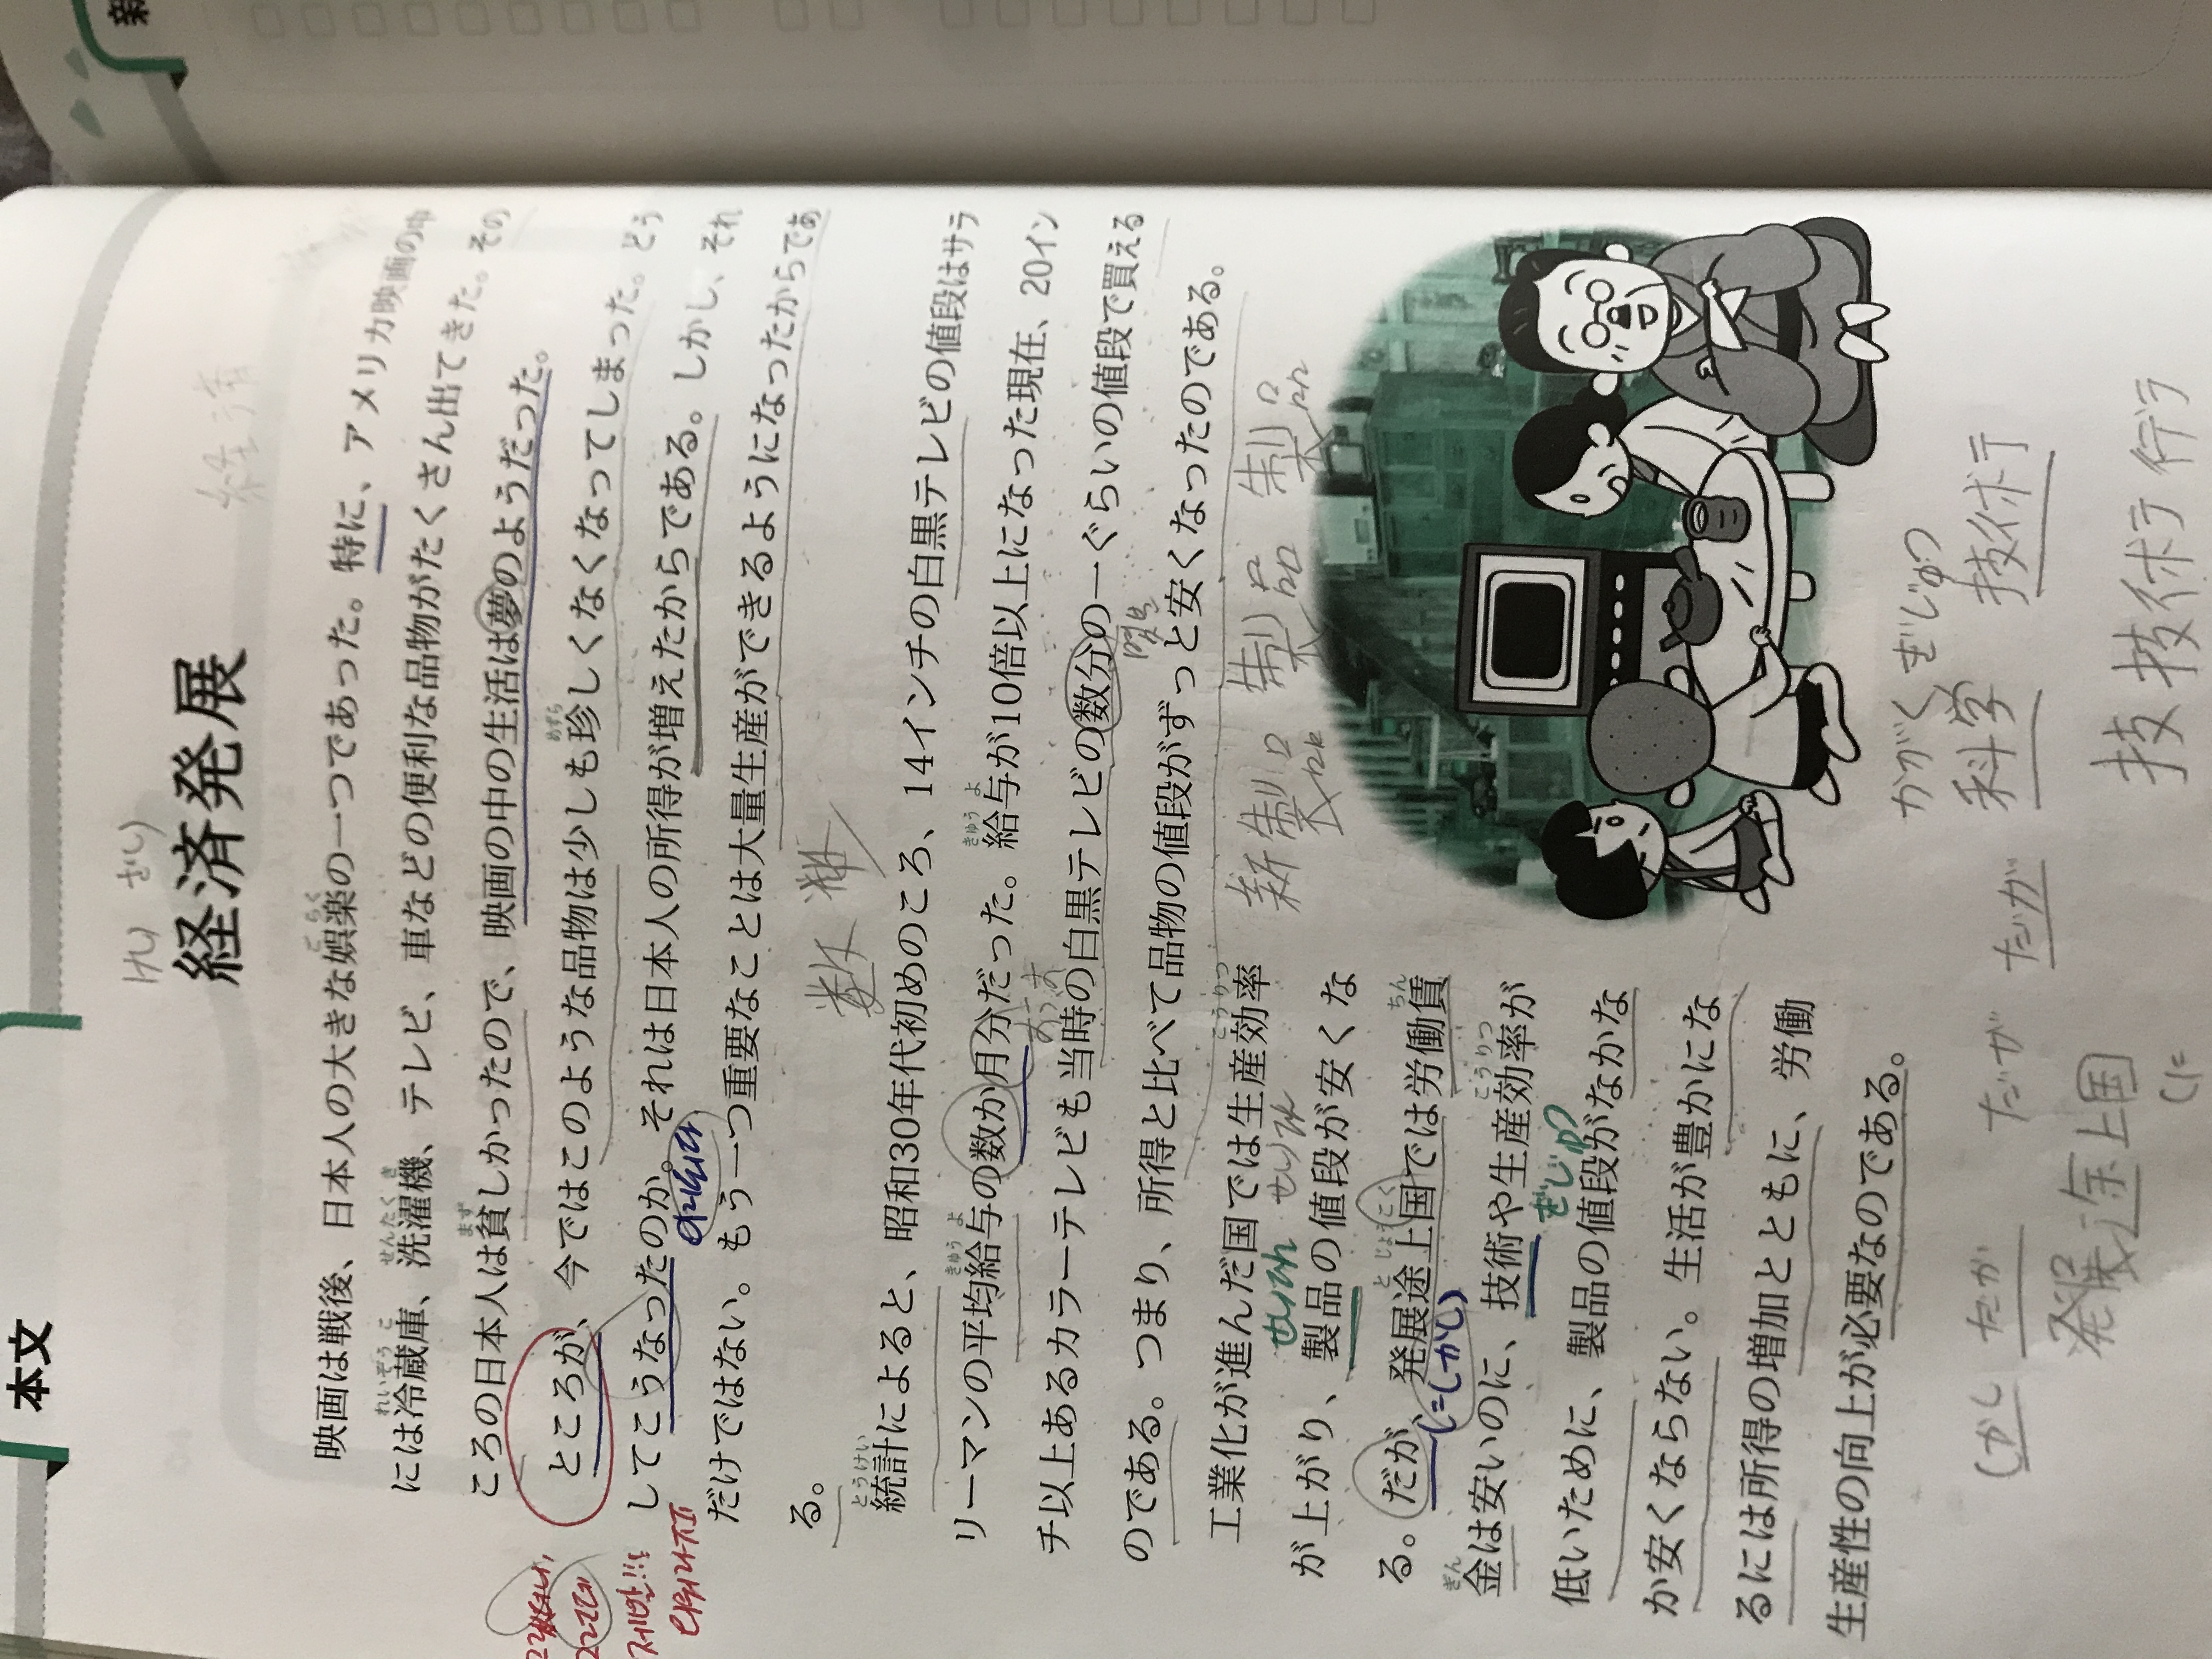 本文
経済発展
けい ざい
映画は戦後、日本人の大きな娯楽の一つであった。特に、アメリカ映画の中
には冷蔵庫、洗濯機、テレビ、車などの便利な品物がたくさん出てきた。その
ころの日本人は貧しかったので、映画の中の生活は夢のようだった。
ところが、今ではこのような品物は少しも珍しくなくなってしまった。どう
してこうなったのか。それは日本人の所得が増えたからである。しかし、それ
だけではない。もう一つ重要なことは大量生産ができるようになったからであ
る。
統計によると、昭和30年代初めのころ、14インチの白黒テレビの値段はサラ
リーマンの平均給与の数か月分だった。給与が10倍以上になった現在、20イン
チ以上あるカラーテレビも当時の白黒テレビの数分の一ぐらいの値段で買える
のである。つまり、所得と比べて品物の値段がずっと安くなったのである。
工業化が進んだ国では生産効率
が上がり、製品の値段が安くな
る。だが、発展途上国では労働賃
金は安いのに、技術や生産効率が
低いために、製品の値段がなかな
か安くならない。生活が豊かにな
るには所得の増加とともに、労働
生産性の向上が必要なのである。
ごらく
れいぞうこ せんたくき
まず
めずら
とうけい
きゅうよ きゅうよ
こうりつ
とじょうこく ちん
ぎん こうりつ
그런데
(=しかし)
せいひん
製品 製品
かがく ぎじゅつ
科学 技術
しかし だが だが だが
発展途上国
技 技術